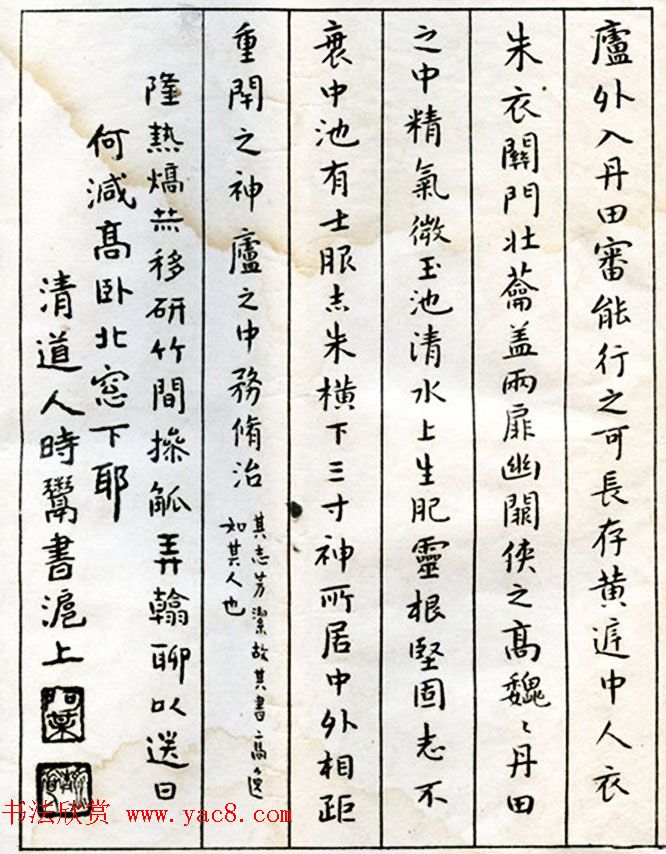 廬外入丹田審能行之可長存黄庭中人衣
朱衣關門壯蘥盖兩扉幽關俠之高魏〻丹田
之中精氣微玉池清水上生肥靈根堅固志不
衰中池有士服赤朱橫下三寸神所居中外相距
重閇之神廬之中務脩治
其志芳潔故其書高逸
如其人也
隆熱熇蒸移研竹間操觚弄翰聊以送日
何減高卧北窓下耶
清道人時鬻書滬上
阿某
书法欣赏 www.yac8.com